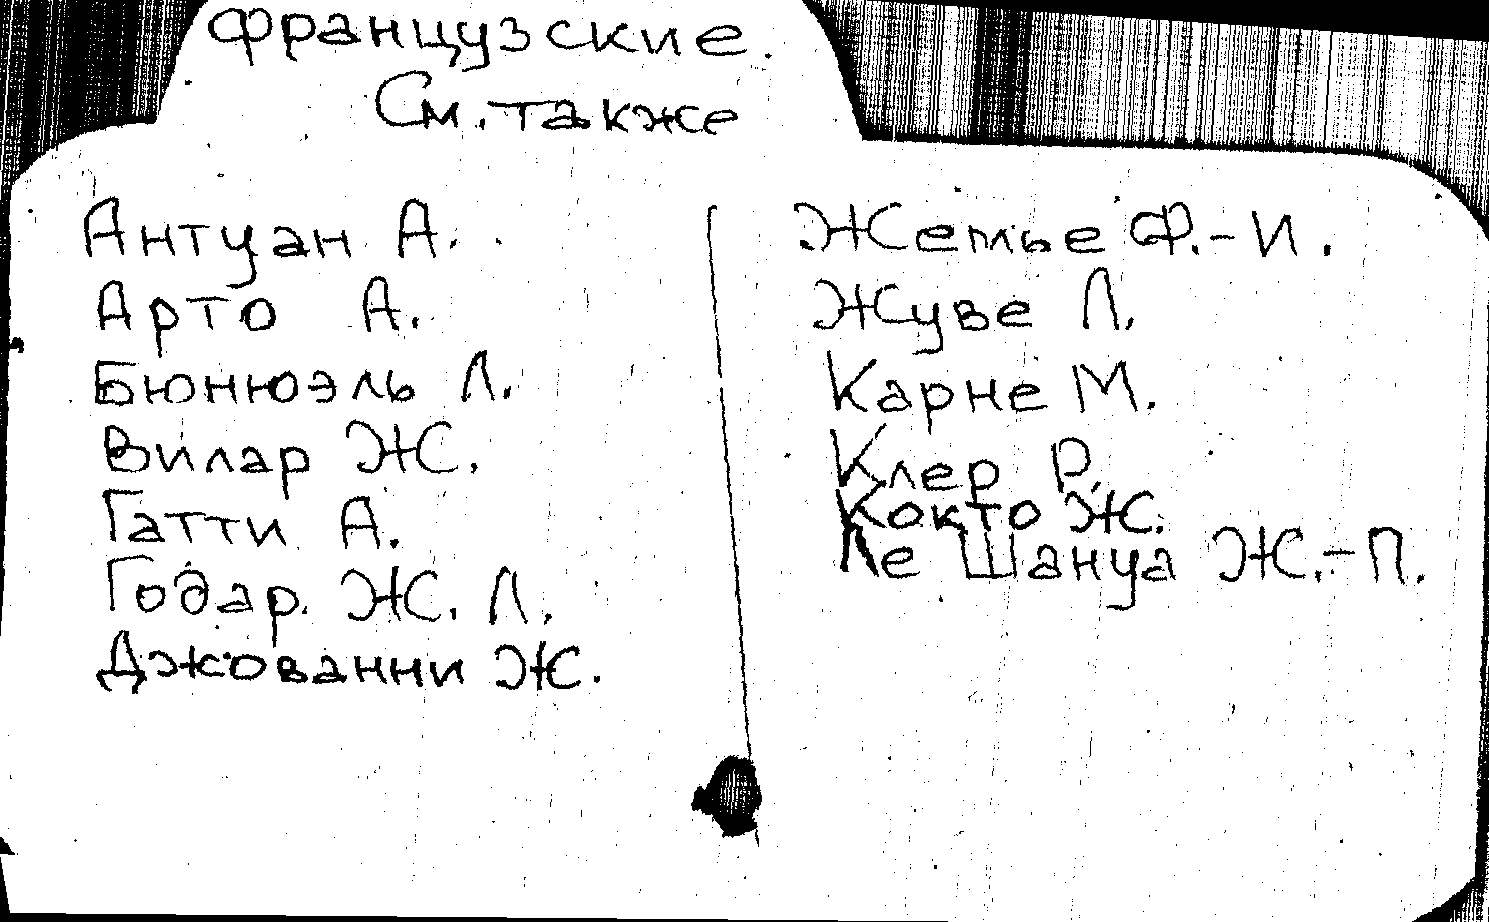 Французские.
См. также
Антуан А.
Арто А.
Бюннюэль Л.
Вилар Ж.
Гатти А.
Годар. Ж. Л.
Джованни Ж.
Жемье Ф.-И.
Жуве Л.
Карне М.
Клер Р.
Кокто Ж.
Ле Шануа Ж.-П.